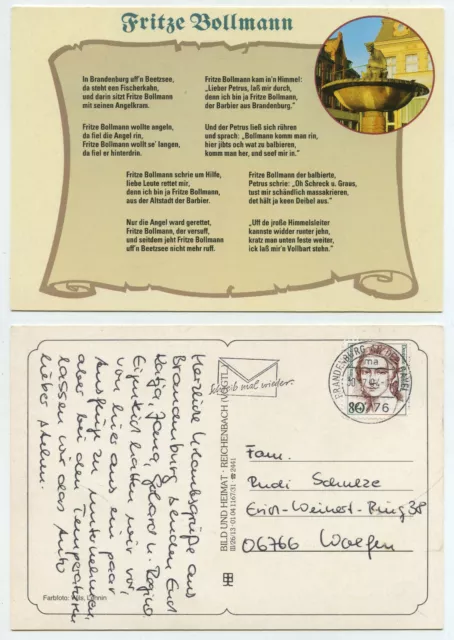 Fritze Bollmann
In Brandenburg uff'n Beetzsee,
da steht een Fischerkahn,
und darin sitzt Fritze Bollmann
mit seinen Angelkram.
Fritze Bollmann wollte angeln,
da fiel die Angel rin,
Fritze Bollmann wollt se' langen,
da fiel er hinterdrin.
Fritze Bollmann schrie um Hilfe,
liebe Leute rettet mir,
denn ich bin ja Fritze Bollmann,
aus der Altstadt der Barbier.
Nur die Angel ward gerettet,
Fritze Bollmann, der versuff,
und seitdem jeht Fritze Bollmann
uff'n Beetzsee nicht mehr ruff.
Fritze Bollmann kam in'n Himmel:
„Lieber Petrus, laß mir durch,
denn ich bin ja Fritze Bollmann,
der Barbier aus Brandenburg."
Und der Petrus ließ sich rühren
und sprach: „Bollmann komm man rin,
hier jibts och wat zu balbieren,
komm man her, und seef mir in."
Fritze Bollmann der balbierte,
Petrus schrie: „Oh Schreck u. Graus,
tust mir schändlich massakrieren,
det hält ja keen Deibel aus."
„Uff de jroße Himmelsleiter
kannste widder runter jehn,
kratz man unten feste weiter,
ick laß mir'n Vollbart stehn."
Herzliche Urlaubsgrüße aus
Brandenburg senden Euch
Katja, Jana, Gerhard u. Regina
Eigentlich hatten wir vor,
von hier aus ein paar
Ausflüge zu unternehmen,
aber bei den Temperaturen
lassen wir das Auto
lieber stehen.
Farbfoto: Lehnin
BILD UND HEIMAT · REICHENBACH (VOGTL)
III/26/13 · 01 04 1167/31 ☎ 2441
Schreib mal wieder.
BRANDENBURG AN DER HAVEL
80
Fam.
Rudi Schulze
Erich-Weinert-Ring 38
06766 Wolfen